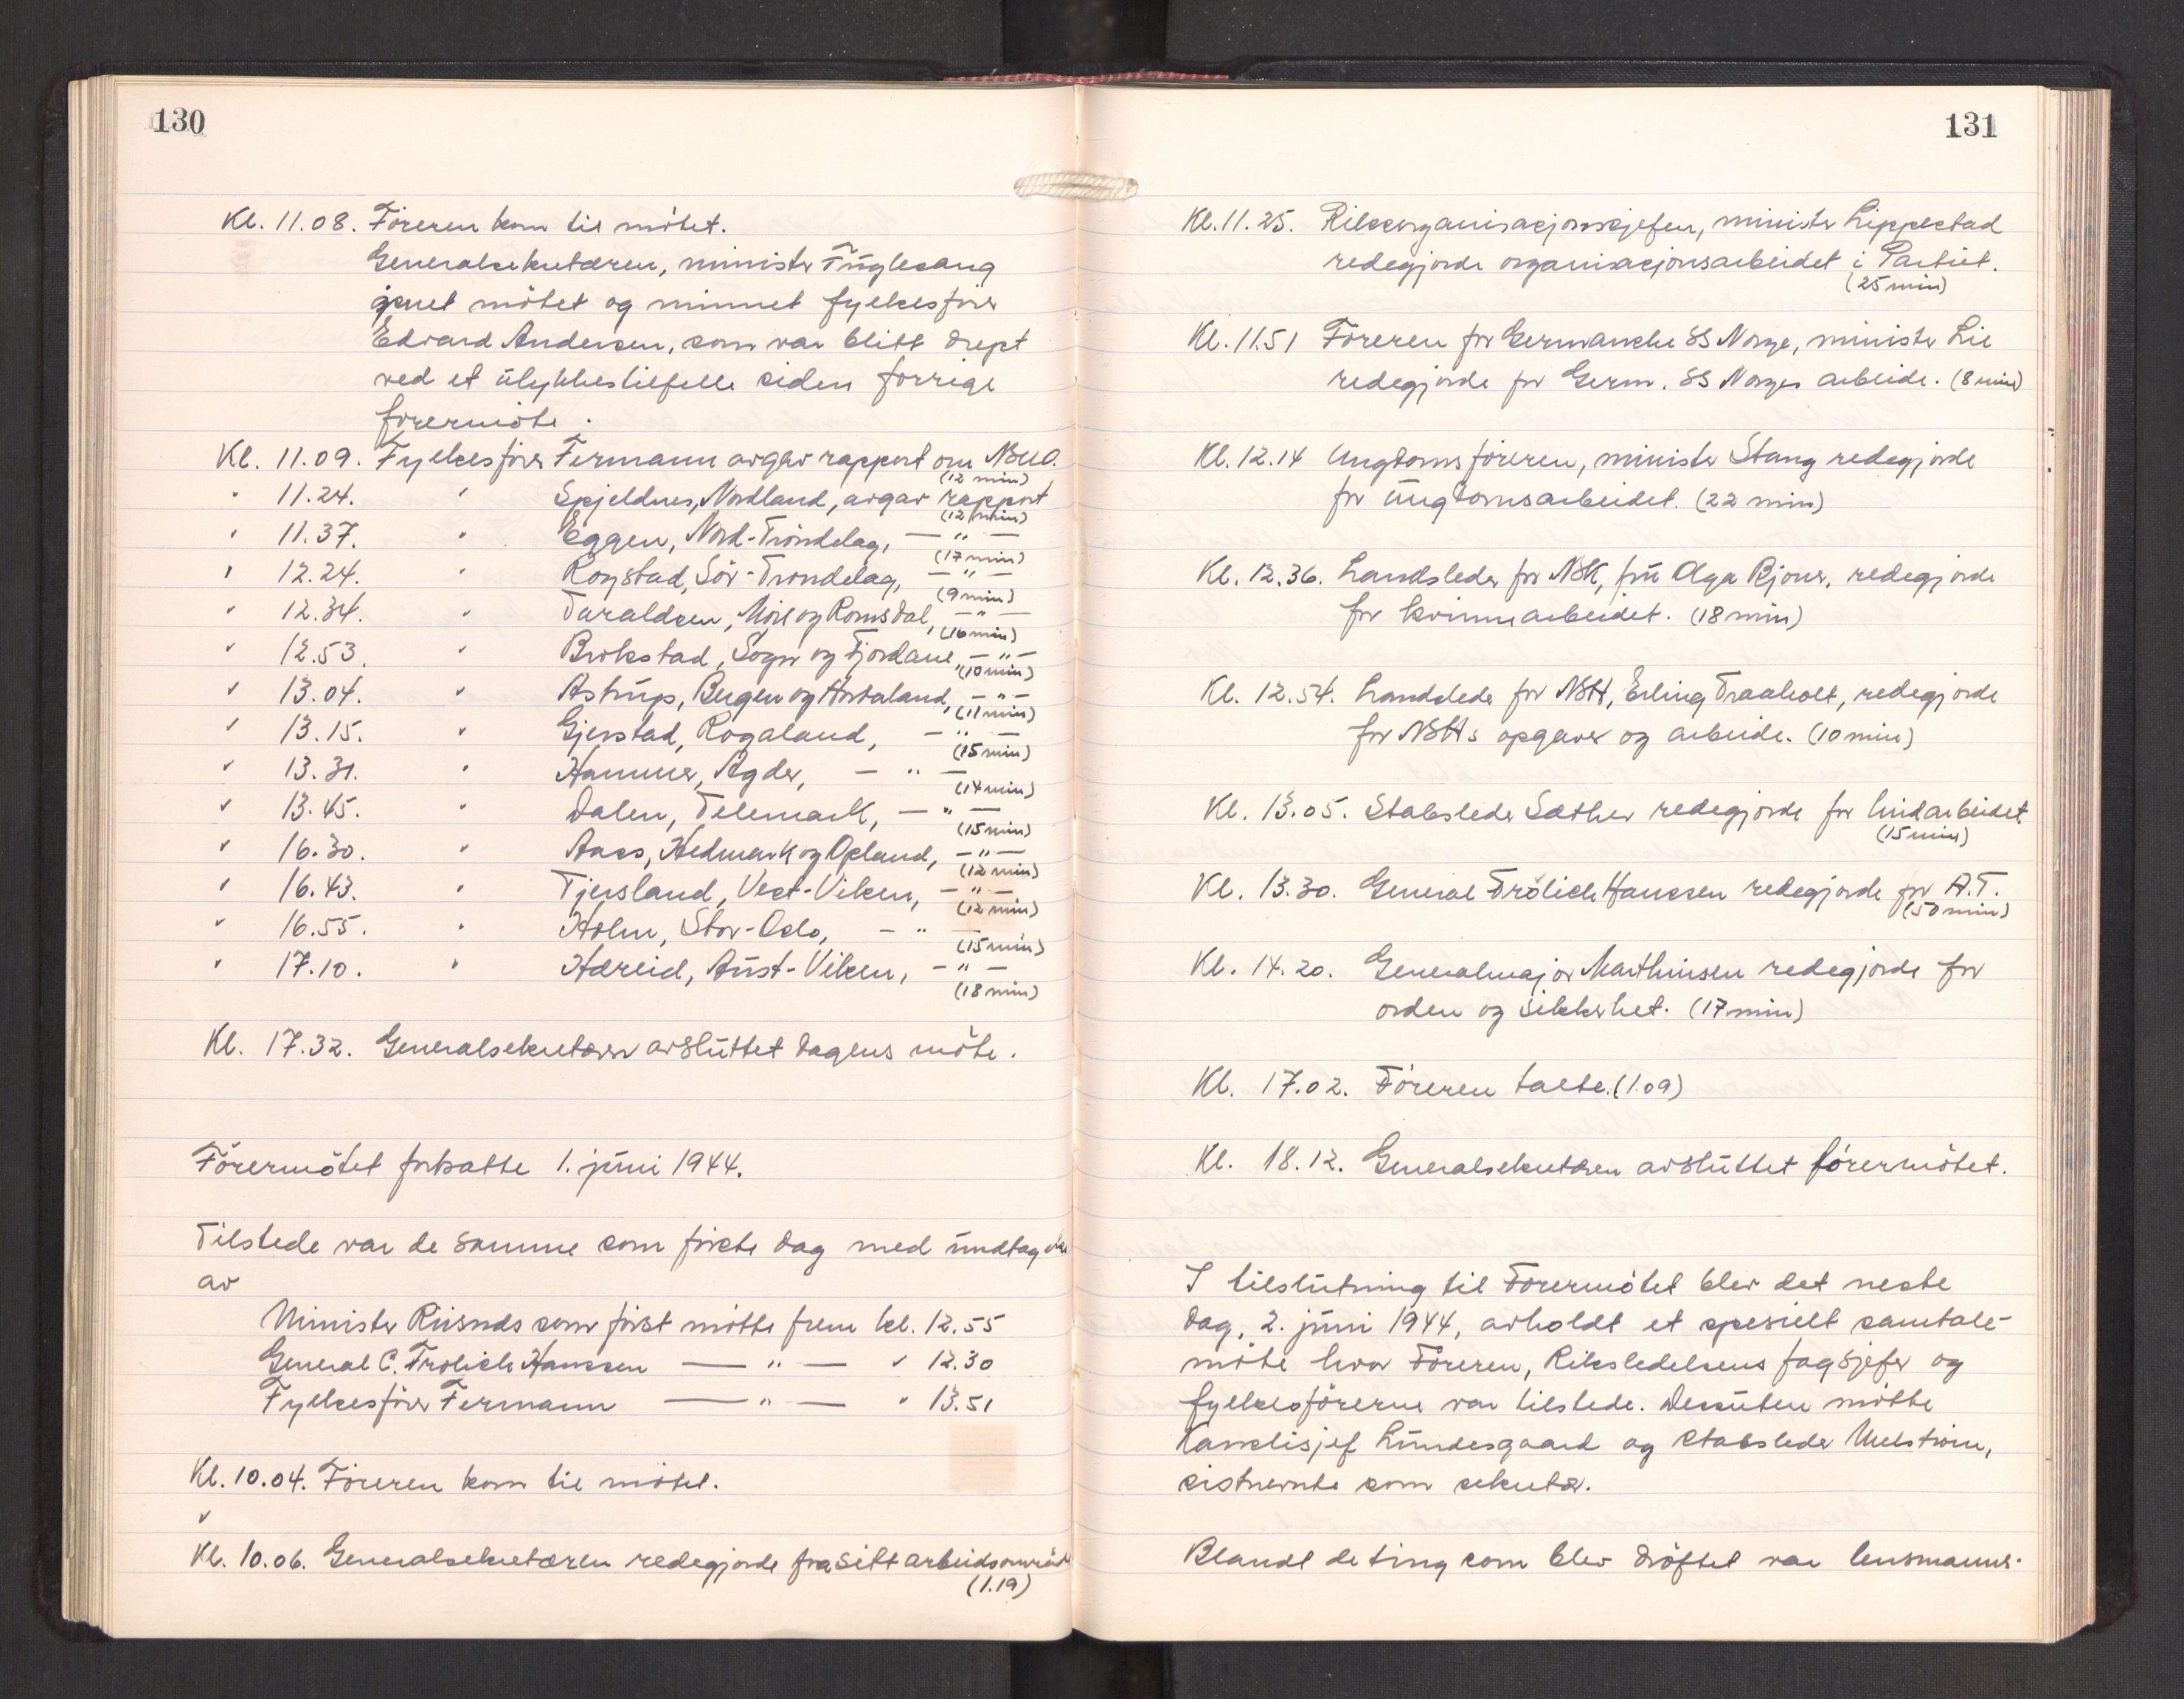 130
Kl. 11.08. Föreren kom til mötet.
Generalsekretæren, minister Fuglesang
åpnet mötet og minnet fylkesförer
Edvard Andersen, som var blitt drept
ved et ulykkestilfelle siden forrige
förermöte.
Kl. 11.09. Fylkesförer Fermann avgav rapport om NSUO.
(12 min)
" 11.24. " Skjeldnes, Nordland, avgav rapport
(12 min)
" 11.37. " Eggen, Nord-Tröndelag, — " —
(17 min)
" 12.24. " Rogstad, Sör-Tröndelag, — " —
(9 min)
" 12.34. " Taraldsen, Möre og Romsdal, — " —
(16 min)
" 12.53. " Brokstad, Sogn og Fjordane, — " —
(10 min)
" 13.04. " Astrup, Bergen og Hordaland, — " —
(11 min)
" 13.15. " Gjerstad, Rogaland, — " —
(15 min)
" 13.31. " Hammer, Agder, — " —
(14 min)
" 13.45. " Dalen, Telemark, — " —
(15 min)
" 16.30. " Aass, Hedmark og Opland, — " —
(12 min)
" 16.43. " Tjersland, Vest-Viken, — " —
(12 min)
" 16.55. " Holm, Stor-Oslo, — " —
(15 min)
" 17.10. " Hæreid, Aust-Viken, — " —
(18 min)
Kl. 17.32. Generalsekretæren avsluttet dagens möte.
Förermötet fortsatte 1. juni 1944.
Tilstede var de samme som förste dag med undtagelse
av
Minister Riisnæs som först mötte frem kl. 12.55
General C. Frölich Hanssen — " — " 12.30
Fylkesförer Fermann — " — " 13.51
Kl. 10.04. Föreren kom til mötet.
"
Kl. 10.06. Generalsekretæren redegjorde fra sitt arbeidsområde
(1.19)
131
Kl. 11.25. Riksorganisasjonssjefen, minister Lippestad
redegjorde organisasjonsarbeidet i Partiet.
(25 min)
Kl. 11.51 Föreren for Germanske SS Norge, minister Lie
redegjorde for Germ. SS Norges arbeide. (8 min)
Kl. 12.14 Ungdomsföreren, minister Stang redegjorde
for ungdomsarbeidet. (22 min)
Kl. 12.36. Landsleder for NSK, fru Olga Bjoner, redegjorde
for kvinnearbeidet. (18 min)
Kl. 12.54. Landsleder for NSH, Erling Traaholt, redegjorde
for NSHs opgaver og arbeide. (10 min)
Kl. 13.05. Stabsleder Sæther redegjorde for hirdarbeidet.
(15 min)
Kl. 13.30. General Frölich Hanssen redegjorde for A.T.
(50 min)
Kl. 14.20. Generalmajor Marthinsen redegjorde for
orden og sikkerhet. (17 min)
Kl. 17.02. Föreren talte. (1.09)
Kl. 18.12. Generalsekretæren avsluttet förermötet.
I tilslutning til Förermötet blev det neste
dag, 2. juni 1944, avholdt et spesielt samtale-
möte hvor Föreren, Riksledelsens fagsjefer og
fylkesförerne var tilstede. Dessuten mötte
Kanslisjef Lundesgaard og stabsleder Melström,
sistnevnte som sekretær.
Blandt de ting som blev dröftet var lensmanns-